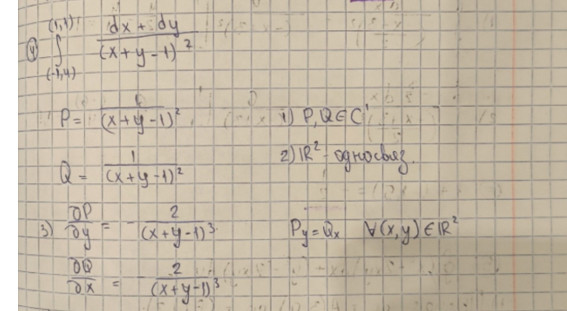 4) ∫_{(-1,4)}^{(1,1)} (dx + dy)/(x+y-1)²
P = 1/(x+y-1)²   1) P, Q ∈ C¹
Q = 1/(x+y-1)²   2) ℝ² - односвяз.
3) ∂P/∂y = -2/(x+y-1)³   P_y = Q_x ∀(x,y) ∈ ℝ²
∂Q/∂x = -2/(x+y-1)³